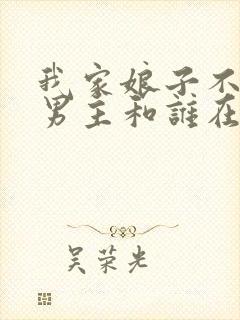 我家娘子不
男主和誰在
吴荣光